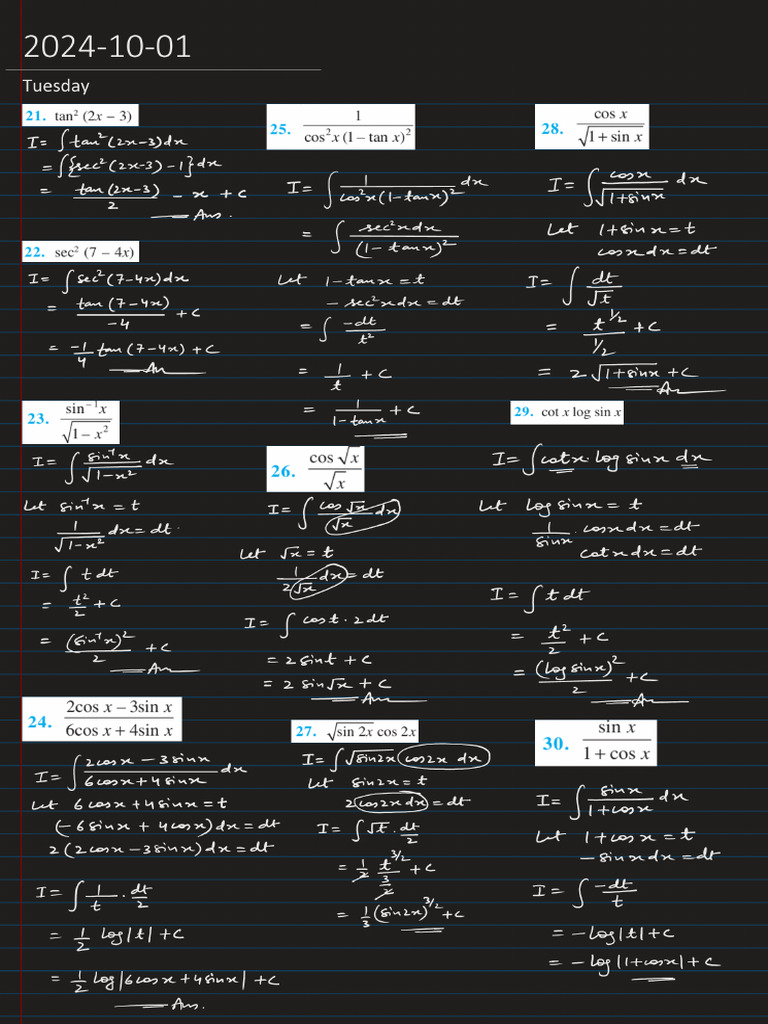 2024-10-01
Tuesday
21. tan² (2x – 3)
I = ∫ tan² (2x-3) dx
= ∫ {sec² (2x-3) - 1} dx
= tan (2x-3) / 2 - x + c
Ans.
22. sec² (7 – 4x)
I = ∫ sec² (7-4x) dx
= tan (7-4x) / -4 + c
= -1/4 tan (7-4x) + c
An
23. sin⁻¹ x / √(1– x²)
I = ∫ sin⁻¹x / √(1-x²) dx
Let sin⁻¹x = t
1 / √(1-x²) dx = dt.
I = ∫ t dt
= t²/2 + c
= (sin⁻¹x)² / 2 + c
An
24. 2cos x – 3sin x / 6cos x + 4sin x
I = ∫ 2cosx - 3sinx / 6cosx + 4sinx dx
Let 6cosx + 4sinx = t
(-6sinx + 4cosx) dx = dt
2 (2cosx - 3sinx) dx = dt
I = ∫ 1/t . dt/2
= 1/2 log|t| + c
= 1/2 log|6cosx + 4sinx| + c
Ans.
25. 1 / cos² x (1 – tan x)²
I = ∫ 1 / cos²x (1-tanx)² dx
= ∫ sec²x dx / (1-tanx)²
Let 1-tanx = t
- sec²x dx = dt
= ∫ -dt / t²
= 1/t + c
= 1 / 1-tanx + c
26. cos √x / √x
I = ∫ cos √x / √x dx
Let √x = t
1 / 2√x dx = dt
I = ∫ cost . 2dt
= 2 sint + c
= 2 sin√x + c
An
27. √(sin 2x) cos 2x
I = ∫ √(sin2x) cos2x dx
Let sin2x = t
2 cos2x dx = dt
I = ∫ √t . dt/2
= 1/2 t^3/2 / 3/2 + c
= 1/3 (sin2x)^3/2 + c
28. cos x / √(1 + sin x)
I = ∫ cosx / √(1+sinx) dx
Let 1+sinx = t
cosx dx = dt
I = ∫ dt / √t
= t^1/2 / 1/2 + c
= 2 √(1+sinx) + c
An
29. cot x log sin x
I = ∫ cotx . log sinx dx
Let log sinx = t
1/sinx . cosx dx = dt
cotx dx = dt
I = ∫ t dt
= t²/2 + c
= (log sinx)² / 2 + c
An
30. sin x / 1 + cos x
I = ∫ sinx / 1+cosx dx
Let 1+cosx = t
- sinx dx = dt
I = ∫ -dt / t
= - log|t| + c
= - log |1+cosx| + c